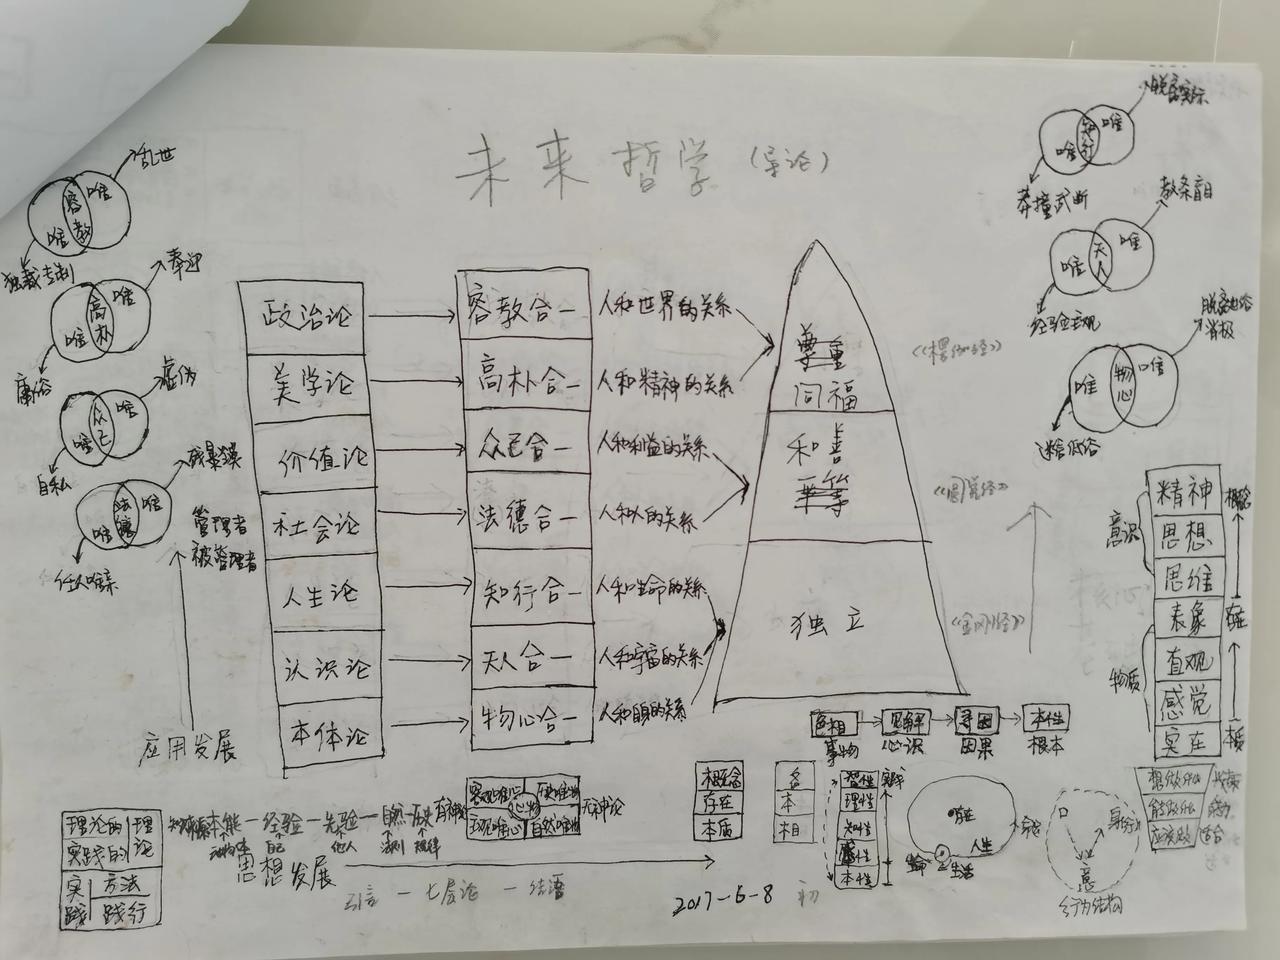 未来哲学（导论）
乱世
容
教
唯
唯
独裁专制
奉迎
高
朴
唯
唯
庸俗
虚伪
众
己
唯
唯
自私
残暴
法
德
唯
唯
任人唯亲
管理者
被管理者
应用发展
政治论
美学论
价值论
社会论
人生论
认识论
本体论
容教合一
高朴合一
众己合一
法德合一
知行合一
天人合一
物心合一
人和世界的关系
人和精神的关系
人和利益的关系
人和人的关系
人和生命的关系
人和宇宙的关系
人和自身的关系
尊重
同福
和善
平等
独立
《楞伽经》
《圆觉经》
《金刚经》
脱离实际
知
行
唯
唯
莽撞武断
教条盲目
天
人
唯
唯
经验主观
消极
物
心
唯
唯
迷信低俗
意识
物质
精神
思想
思维
表象
直观
感觉
实在
概念
存在
本质
色相
事物
见解
心识
寻因
因果
本性
根本
理论的
理论
实践的
实践
方法
践行
本能 — 经验 — 先验 — 自然 — 历史
自己
他人
法则
规律
思想发展
引言 — 七层论 — 结语
2017-6-8 初
心物
无神论
概念
存在
本质
名
本
相
智性
理性
知性
感性
本性
存在
人生
生命
生活
口
身
意
行为结构
想做什么
能做什么
应该做